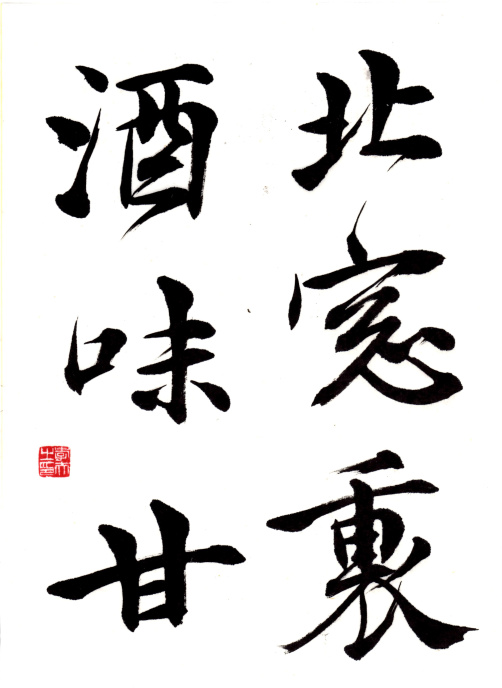 北窓裏
酒味甘